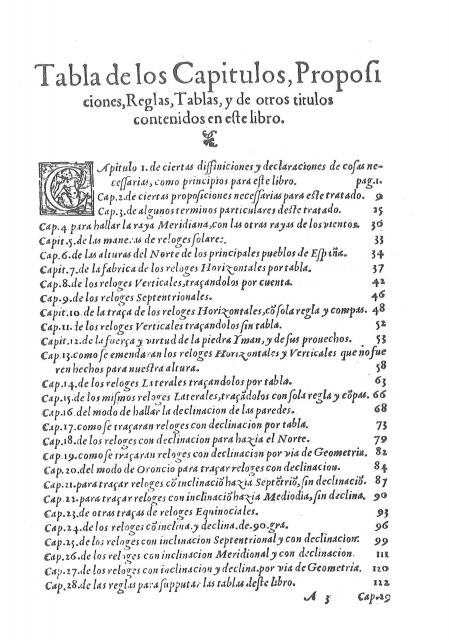 Tabla de los Capitulos, Proposi
ciones, Reglas, Tablas, y de otros titulos
contenidos en este libro.
CApitulo 1. de ciertas diffiniciones y declaraciones de cosas ne-
cessarias, como principios para este libro. pag. 1.
Cap. 2. de ciertas proposiciones necessarias para este tratado. 9
Cap. 3. de algunos terminos particulares deste tratado. 25
Cap. 4 para hallar la raya Meridiana, con las otras rayas de los vientos. 30
Capit. 5. de las maneras de reloges solares. 33
Cap. 6. de las alturas del Norte de los principales pueblos de España. 34
Capit. 7. de la fabrica de los reloges Horizontales por tabla. 37
Cap. 8. de los reloges Verticales, traçandolos por cuenta. 42
Cap. 9. de los reloges Septentrionales. 46
Capit. 10. de la traça de los reloges Horizontales, cõ sola regla y compas. 48
Cap. 11. de los reloges Verticales traçandolos sin tabla. 52
Capit. 12. de la fuerça y virtud de la piedra Yman, y de sus prouechos. 53
Cap. 13. como se emendaran los reloges Horizontales y Verticales que no fue
ren hechos para nuestra altura. 58
Cap. 14. de los reloges Laterales traçandolos por tabla. 63
Cap. 15. de los mismos reloges Laterales, traçãdolos con sola regla y cõpas. 66
Cap. 16. del modo de hallar la declinacion de las paredes. 68
Cap. 17. como se traçaran reloges con declinacion por tabla. 73
Cap. 18. de los reloges con declinacion para hazia el Norte. 79
Cap. 19. como se traçaran reloges con declinacion por via de Geometria. 82
Cap. 20. del modo de Oroncio para traçar reloges con declinacion. 84
Cap. 21. para traçar reloges cõ inclinaciõ hazia Septẽtriõ, sin declinaciõ. 87
Cap. 22. para traçar reloges con inclinaciõ hazia Mediodia, sin declina. 90
Cap. 23. de otras traças de reloges Equinociales. 93
Cap. 24. de los reloges cõ inclina. y declina. de. 90. gra. 96
Cap. 25. de los reloges con inclinacion Septentrional y con declinacion. 99
Cap. 26. de los reloges con inclinacion Meridional y con declinacion. 111
Cap. 27. de los reloges con inclinacion y declina. por via de Geometria. 120
Cap. 28. de las reglas para supputar las tablas deste libro. 122
A 3 Cap. 29